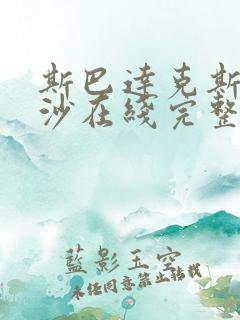 斯巴達克斯
沙在綫完整
藍影玉空
未经同意禁止转载